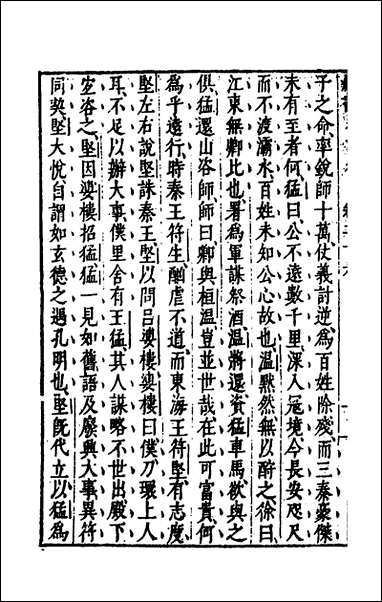 子之命率銳師十萬仗義討逆為百姓除殘而三秦豪傑
未有至者何猛曰公不遠數千里深入冦境今長安咫尺
而不渡灞水百姓未知公心故也温默然無以酧之徐曰
江東無卿比也署為軍謀祭酒温將還資猛車馬欲與之
俱猛還山咨師師曰卿與桓温豈並世哉在此可富貴何
為乎遠行時秦王符生酗虐不道而東海王符堅有志度
堅左右說堅誅秦王堅以問吕婆樓婆樓曰僕刀環上人
耳不足以辦大事僕里舍有王猛其人謀略不世出殿下
宜咨之堅因婆樓招猛猛一見如舊語及廢興大事異符
同契堅大悅自謂如玄德之遇孔明也堅旣代立以猛為